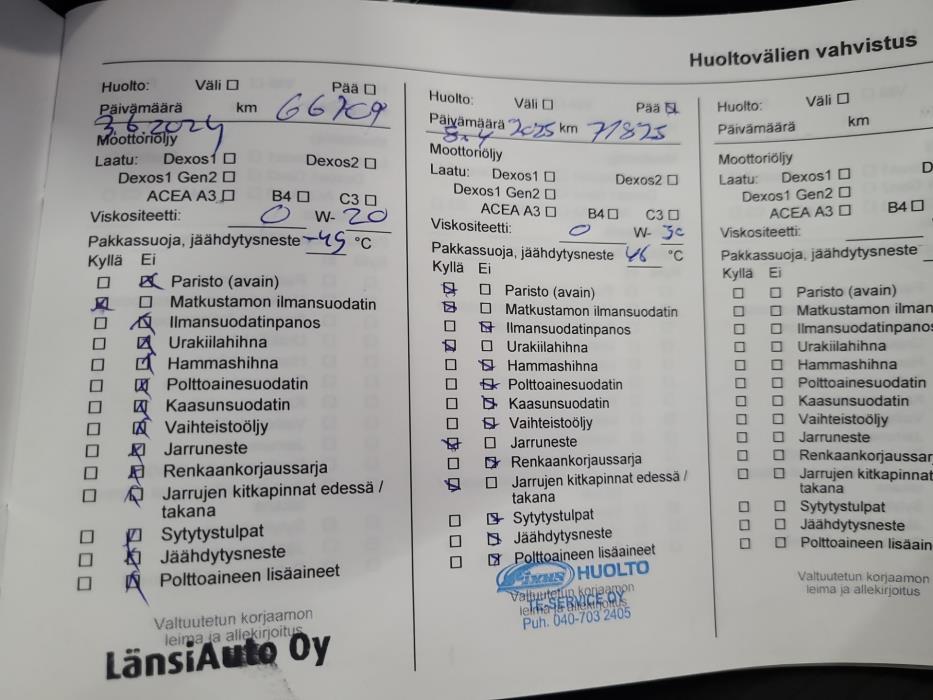 Huoltovälien vahvistus
Huolto: Väli ☐ Pää ☐
Päivämäärä km 66709
3.6.2024
Moottoriöljy
Laatu: Dexos1 ☐ Dexos2 ☐
Dexos1 Gen2 ☐
ACEA A3 ☐ B4 ☐ C3 ☐
Viskositeetti: 0 W- 20
Pakkassuoja, jäähdytysneste -45 °C
Kyllä Ei
☐ ☒ Paristo (avain)
☒ ☐ Matkustamon ilmansuodatin
☐ ☒ Ilmansuodatinpanos
☐ ☒ Urakiilahihna
☐ ☒ Hammashihna
☐ ☒ Polttoainesuodatin
☐ ☒ Kaasunsuodatin
☐ ☒ Vaihteistoöljy
☐ ☒ Jarruneste
☐ ☒ Renkaankorjaussarja
☐ ☒ Jarrujen kitkapinnat edessä /
takana
☐ ☒ Sytytystulpat
☐ ☒ Jäähdytysneste
☐ ☒ Polttoaineen lisäaineet
Valtuutetun korjaamon
leima ja allekirjoitus
LänsiAuto Oy
Huolto: Väli ☐ Pää ☒
Päivämäärä 2025 km 71825
Moottoriöljy
Laatu: Dexos1 ☐ Dexos2 ☐
Dexos1 Gen2 ☐
ACEA A3 ☐ B4 ☐ C3 ☐
Viskositeetti: 0 W- 30
Pakkassuoja, jäähdytysneste 46 °C
Kyllä Ei
☒ ☐ Paristo (avain)
☒ ☐ Matkustamon ilmansuodatin
☐ ☒ Ilmansuodatinpanos
☒ ☐ Urakiilahihna
☐ ☒ Hammashihna
☐ ☒ Polttoainesuodatin
☐ ☒ Kaasunsuodatin
☐ ☒ Vaihteistoöljy
☒ ☐ Jarruneste
☐ ☒ Renkaankorjaussarja
☒ ☐ Jarrujen kitkapinnat edessä /
takana
☐ ☒ Sytytystulpat
☐ ☒ Jäähdytysneste
☐ ☒ Polttoaineen lisäaineet
Fixus HUOLTO
Valtuutetun korjaamon
leima ja allekirjoitus
TE-SERVICE OY
Puh. 040-703 2405
Huolto: Väli ☐
Päivämäärä km
Moottoriöljy
Laatu: Dexos1 ☐ D
Dexos1 Gen2 ☐
ACEA A3 ☐ B4 ☐
Viskositeetti:
Pakkassuoja, jäähdytysneste
Kyllä Ei
☐ ☐ Paristo (avain)
☐ ☐ Matkustamon ilman
☐ ☐ Ilmansuodatinpanos
☐ ☐ Urakiilahihna
☐ ☐ Hammashihna
☐ ☐ Polttoainesuodatin
☐ ☐ Kaasunsuodatin
☐ ☐ Vaihteistoöljy
☐ ☐ Jarruneste
☐ ☐ Renkaankorjaussarj
☐ ☐ Jarrujen kitkapinnat
takana
☐ ☐ Sytytystulpat
☐ ☐ Jäähdytysneste
☐ ☐ Polttoaineen lisäain
Valtuutetun korjaamon
leima ja allekirjoitus